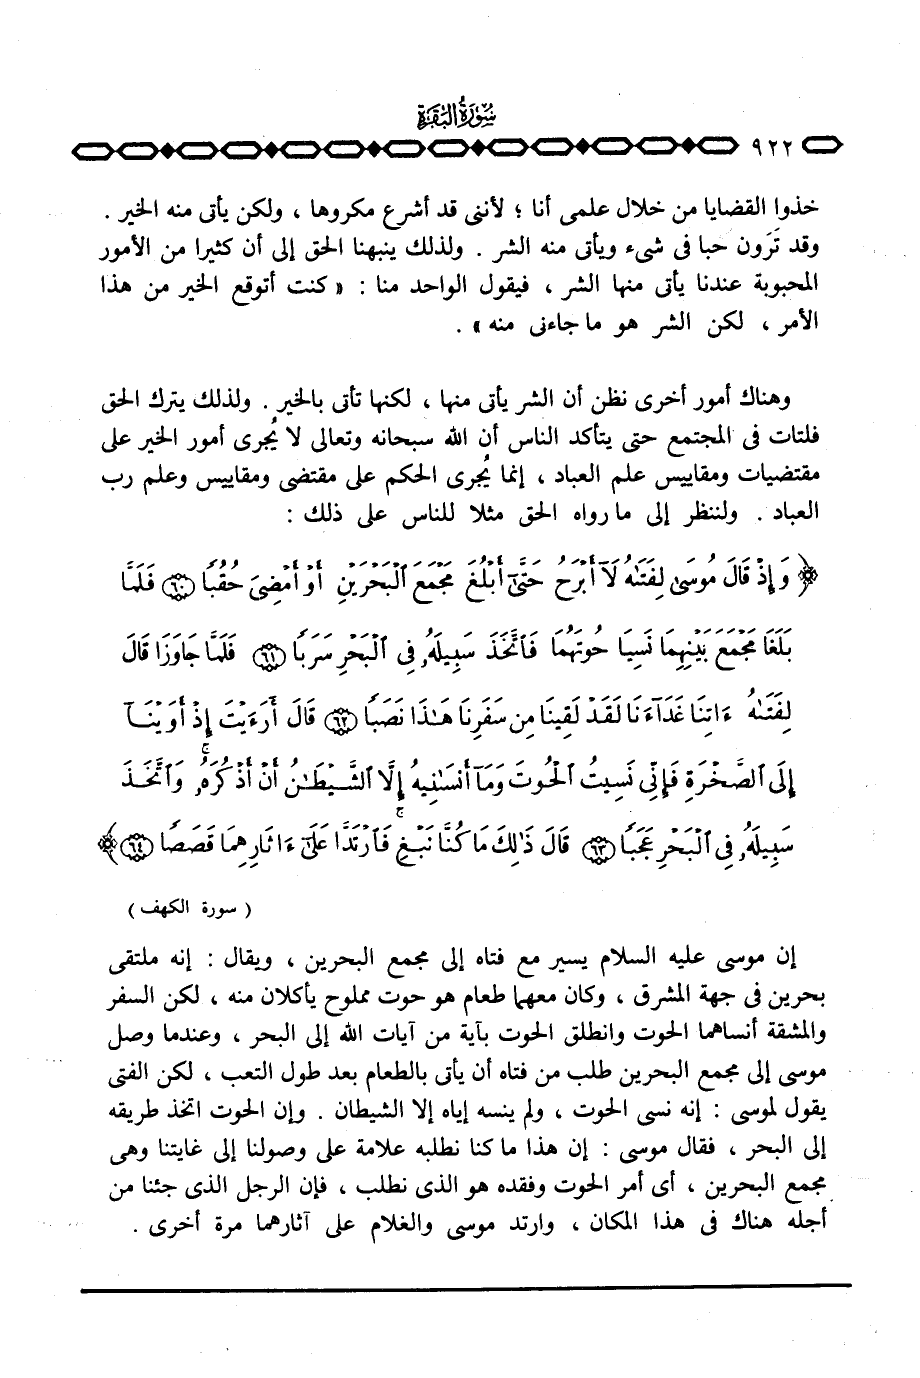 سورة البقرة
٩٢٢
خذوا القضايا من خلال علمى أنا ؛ لأننى قد أشرع مكروها ، ولكن يأتى منه الخير .
وقد تَرَون حبا فى شىء ويأتى منه الشر . ولذلك ينبهنا الحق إلى أن كثيرا من الأمور
المحبوبة عندنا يأتى منها الشر ، فيقول الواحد منا : « كنت أتوقع الخير من هذا
الأمر ، لكن الشر هو ما جاءنى منه » .
وهناك أمور أخرى نظن أن الشر يأتى منها ، لكنها تأتى بالخير . ولذلك يترك الحق
فلتات فى المجتمع حتى يتأكد الناس أن الله سبحانه وتعالى لا يُجرى أمور الخير على
مقتضيات ومقاييس علم العباد ، إنما يُجرى الحكم على مقتضى ومقاييس وعلم رب
العباد . ولننظر إلى ما رواه الحق مثلا للناس على ذلك :
﴿ وَإِذْ قَالَ مُوسَىٰ لِفَتَىٰهُ لَآ أَبْرَحُ حَتَّىٰٓ أَبْلُغَ مَجْمَعَ ٱلْبَحْرَيْنِ أَوْ أَمْضِىَ حُقُبًا ۝٦٠ فَلَمَّا
بَلَغَا مَجْمَعَ بَيْنِهِمَا نَسِيَا حُوتَهُمَا فَٱتَّخَذَ سَبِيلَهُۥ فِى ٱلْبَحْرِ سَرَبًا ۝٦١ فَلَمَّا جَاوَزَا قَالَ
لِفَتَىٰهُ ءَاتِنَا غَدَآءَنَا لَقَدْ لَقِينَا مِن سَفَرِنَا هَـٰذَا نَصَبًا ۝٦٢ قَالَ أَرَءَيْتَ إِذْ أَوَيْنَآ
إِلَى ٱلصَّخْرَةِ فَإِنِّى نَسِيتُ ٱلْحُوتَ وَمَآ أَنسَىٰنِيهُ إِلَّا ٱلشَّيْطَـٰنُ أَنْ أَذْكُرَهُۥ ۚ وَٱتَّخَذَ
سَبِيلَهُۥ فِى ٱلْبَحْرِ عَجَبًا ۝٦٣ قَالَ ذَٰلِكَ مَا كُنَّا نَبْغِ ۚ فَٱرْتَدَّا عَلَىٰٓ ءَاثَارِهِمَا قَصَصًا ۝٦٤ ﴾
( سورة الكهف )
إن موسى عليه السلام يسير مع فتاه إلى مجمع البحرين ، ويقال : إنه ملتقى
بحرين فى جهة المشرق ، وكان معهما طعام هو حوت مملوح يأكلان منه ، لكن السفر
والمشقة أنساهما الحوت وانطلق الحوت بآية من آيات الله إلى البحر ، وعندما وصل
موسى إلى مجمع البحرين طلب من فتاه أن يأتى بالطعام بعد طول التعب ، لكن الفتى
يقول لموسى : إنه نسى الحوت ، ولم ينسه إياه إلا الشيطان . وإن الحوت اتخذ طريقه
إلى البحر ، فقال موسى : إن هذا ما كنا نطلبه علامة على وصولنا إلى غايتنا وهى
مجمع البحرين ، أى أمر الحوت وفقده هو الذى نطلب ، فإن الرجل الذى جئنا من
أجله هناك فى هذا المكان ، وارتد موسى والغلام على آثارهما مرة أخرى .